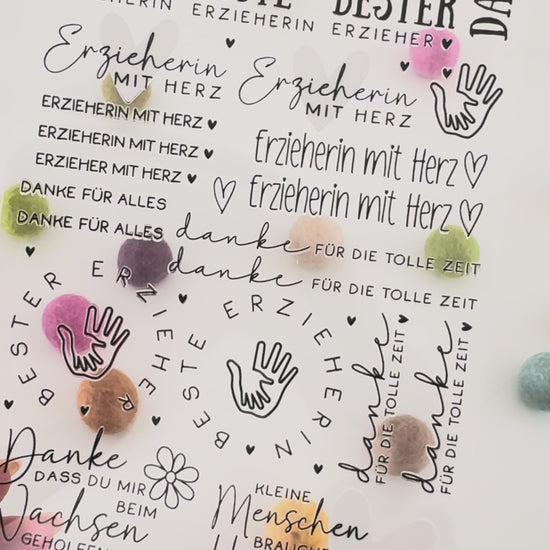 BESTER
ERZIEHERIN ERZIEHER
Erzieherin
MIT HERZ
Erzieherin
MIT HERZ
ERZIEHERIN MIT HERZ
ERZIEHERIN MIT HERZ
ERZIEHER MIT HERZ
Erzieherin mit Herz
Erzieherin mit Herz
DANKE FÜR ALLES
DANKE FÜR ALLES
danke FÜR DIE TOLLE ZEIT
danke FÜR DIE TOLLE ZEIT
BESTER ERZIEHER
BESTE ERZIEHERIN
danke
FÜR DIE TOLLE ZEIT
danke
FÜR DIE TOLLE ZEIT
Danke
DASS DU MIR
BEIM
Wachsen
KLEINE
Menschen